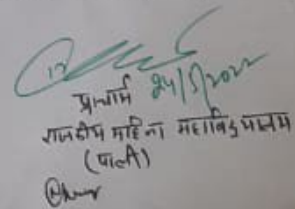 प्राचार्य 24/5/2022
राजकीय महिला महाविद्यालय
(पाली)